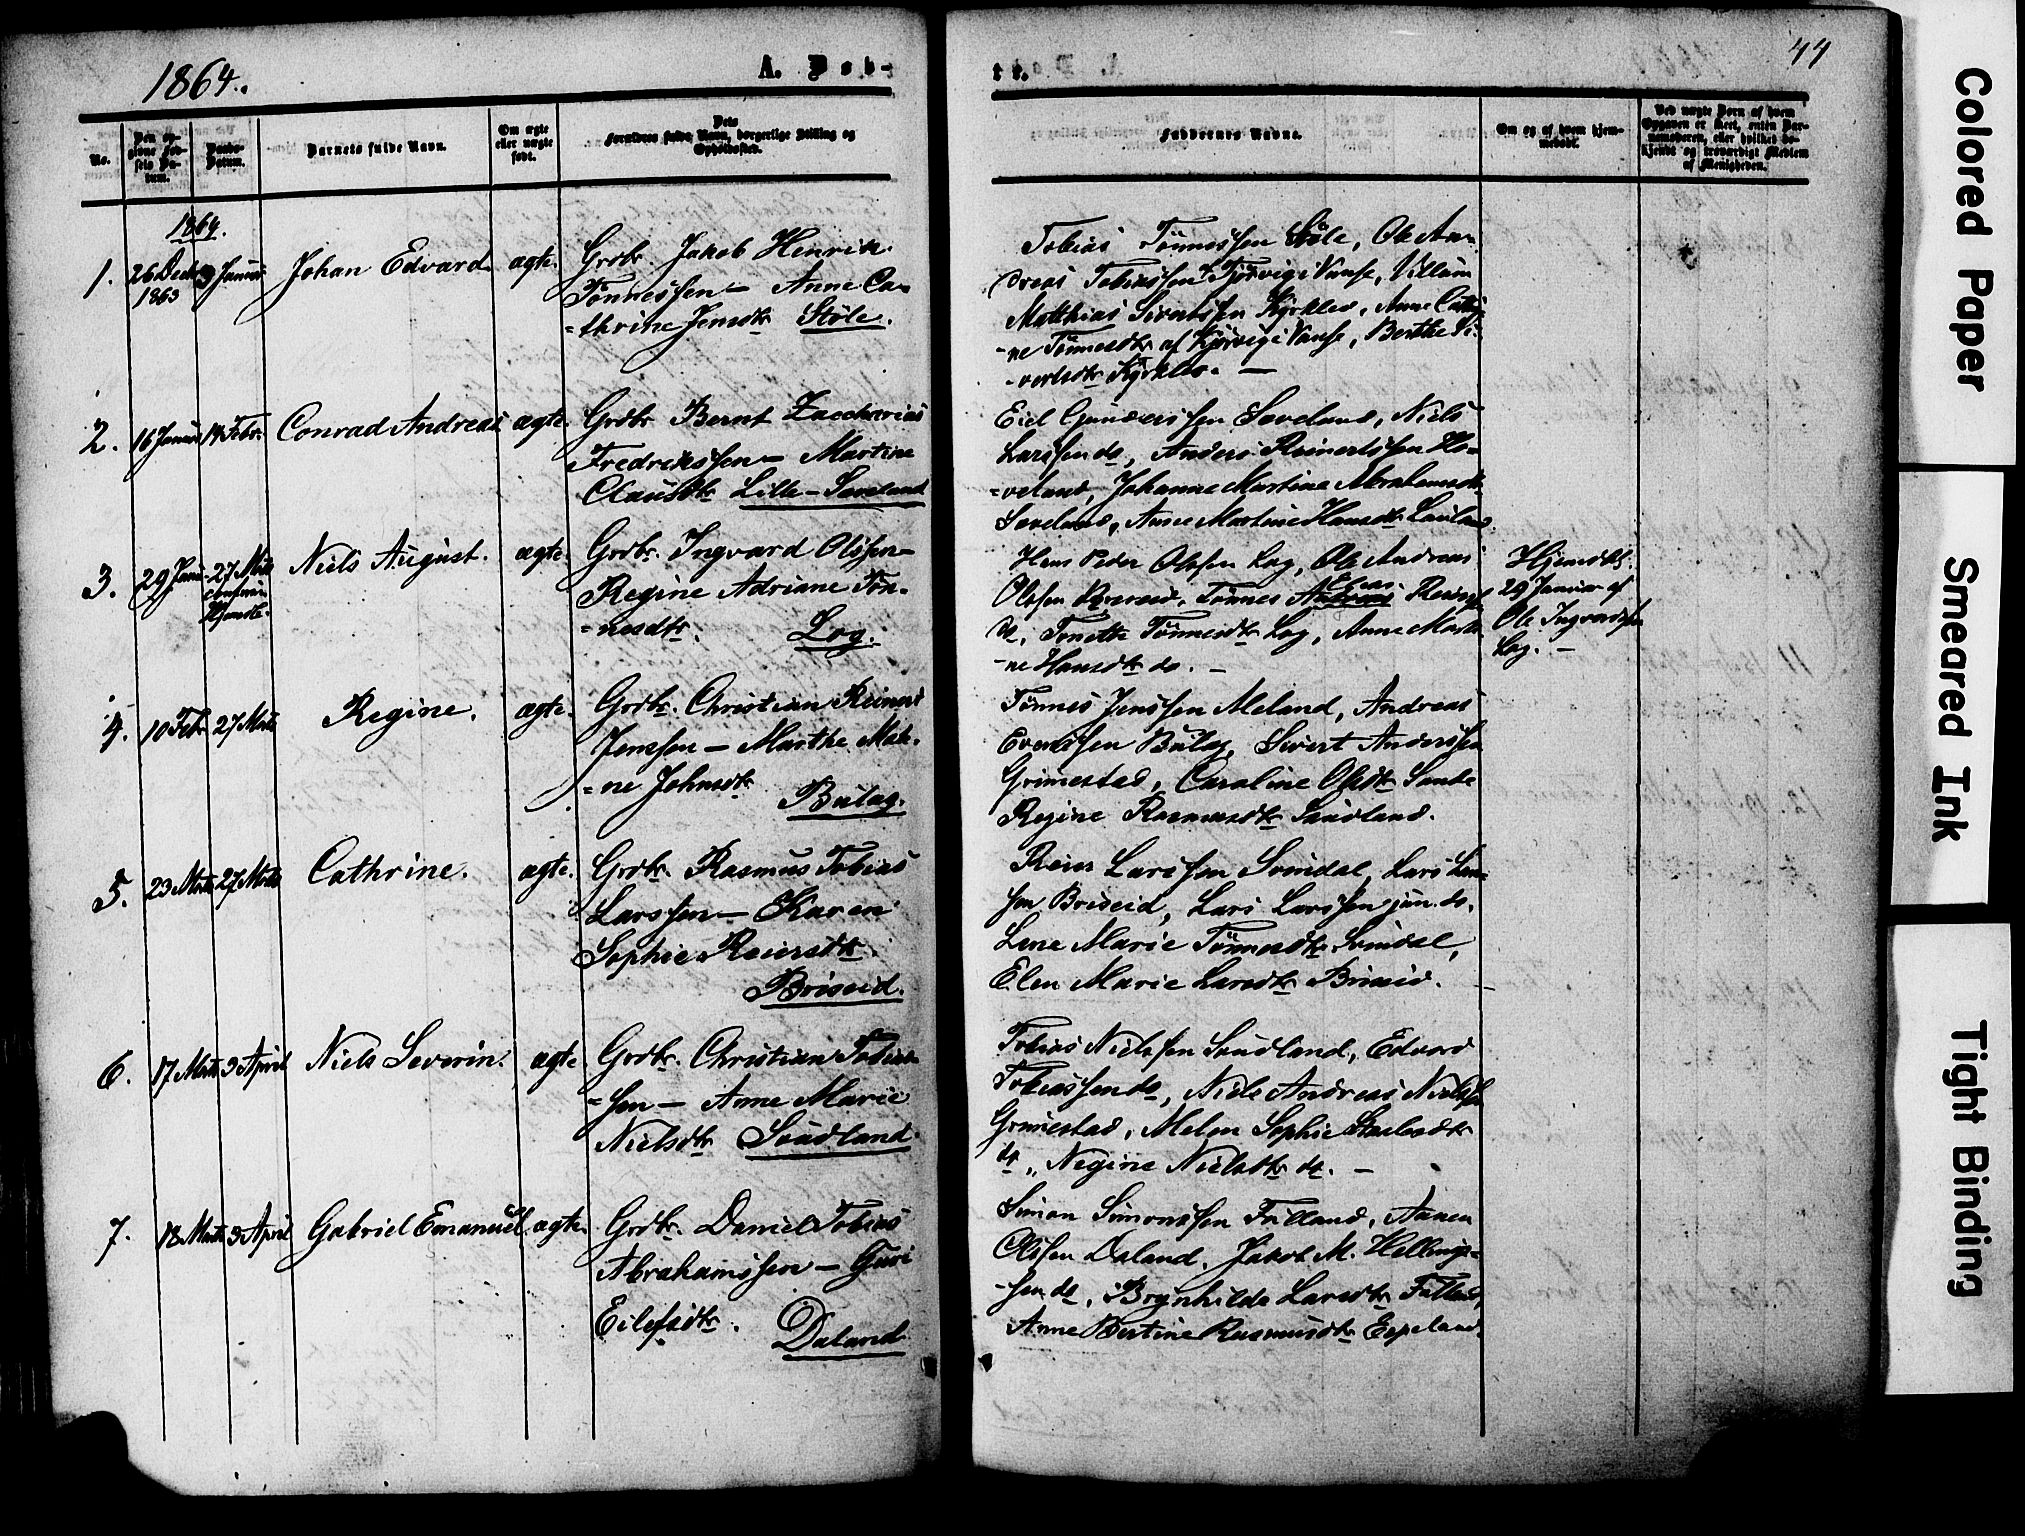 1864.
A. Døb-
No.
Den opgivne Fødsels Datum.
Daabs-Datum.
Barnets fulde Navn.
Om ægte eller uægte født.
Dets Forældres fulde Navn, borgerlige Stilling og Opholdssted.
1864.
1. 26 Decbr 1863 3 Januar Johan Edvard ægte. Grdbr. Jakob Henrik
Tönnessen — Anne Ca-
=thrine Jensdtr Støle.
2. 16 Januar 14 Febr. Conrad Andreas ægte. Grdbr Bernt Zacharias
Fredrikssen — Martine
Clausdtr Lille-Søveland
3. 29 Janu. 27 Mts Niels August. ægte. Grdbr. Ingvard Olssen —
Regine Adriane Tön-
=nesdtr. Log.
4. 10 Febr 27 Mts Regine. ægte. Grdbr. Christian Reinert
Jenssen — Marthe Mal-
=ne Johnsdtr Bulag.
5. 23 Mts 27 Mts Cathrine. ægte. Grdbr. Rasmus Tobias
Larssen — Karen
Sophie Reiersdtr.
Briseid.
6. 17 Mts 3 April Niels Severin. ægte Grdbr. Christian Tobias-
=sen — Anne Marie
Nielsdtr Sandland.
7. 18 Mts 3 April Gabriel Emanuel. ægte. Grdbr. Daniel Tobias
Abrahamssen — Guri
Eilefsdtr.
Daland
44
te.
Faddrenes Navne.
Om og af hvem hjemmedøbt.
Ved uægte Børn af hvem Opgaven er skeet, enten Barnemoderen, eller hvilket bekjendt og troværdigt Medlem af Menigheden.
Tobias Tönnessen Støle, Ole An-
dreas Tobiassen Tjørvig i Vanse, Villum
Matthias Sivertsen Kjørklev, Anne Cathri-
-ne Tönnesdtr af Kjørvig i Vanse, Berthe Si-
-vertsdtr Kjørklev. —
Eiel Gunderssen Søveland, Niels
Larssen do, Anders Reinertssen Ho-
=veland, Johanne Martine Abrahamsdtr
Søveland, Anne Martine Hansdtr Lauland.
Hans Peder Olssen Log, Ole Andreas
Olssen, Tönnes Elias
do, Tonette Tönnesdtr Log, Anne Marti-
-ne Hansdtr do. —
Hjemdbt.
29 Januar af
Ole Ingvardsen
Log. —
Tönnes Jenssen Meland, Andreas
Evenssen Bulag, Sivert Anderssen
Grimestad, Caroline Olsdtr Sande
Regine Rasmusdtr Sandland.
Reier Larssen Svindal, Lars Lars-
sen Briseid, Lars Larssen jun. do.
Lene Marie Tönnesdtr Svindal,
Elen Marie Larsdtr Briseid.
Tobias Nielssen Sandland, Edvard
Tobiassen do, Niels Andreas Nielssen
Grimestad, Malen Sophie
do, Regine Nielsdtr do. —
Simon Simonssen Fidland, Aanen
Olssen Daland, Jakob M. Hellings-
-sen do, Brynhilde Larsdtr
Anne Bertine Rasmusdtr Espeland.
Colored Paper
Smeared Ink
Tight Binding